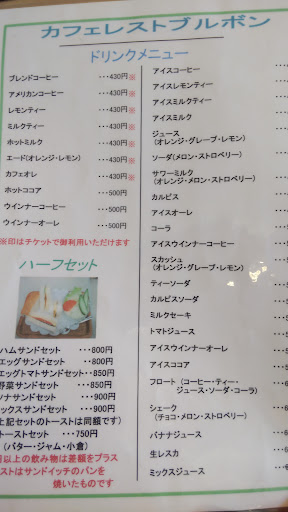 カフェレストブルボン
ドリンクメニュー
ブレンドコーヒー ・・・430円※
アメリカンコーヒー ・・・430円※
レモンティー ・・・430円※
ミルクティー ・・・430円※
ホットミルク ・・・430円※
エード(オレンジ・レモン) ・・・430円※
カフェオレ ・・・430円※
ホットココア ・・・500円
ウインナーコーヒー ・・・500円
ウインナーオーレ ・・・500円
※印はチケットで御利用いただけます
ハーフセット
ハムサンドセット ・・・800円
エッグサンドセット ・・・800円
エッグトマトサンドセット ・・・850円
野菜サンドセット ・・・850円
ツナサンドセット ・・・900円
ックスサンドセット ・・・900円
上記セットのトーストは同額です)
トーストセット ・・・750円
(バター・ジャム・小倉)
以上の飲み物は差額をプラス
ストはサンドイッチのパンを
焼いたものです
アイスコーヒー
アイスレモンティー
アイスミルクティー
アイスミルク
ジュース
(オレンジ・グレープ・レモン)
ソーダ(メロン・ストロベリー)
サワーミルク
(オレンジ・メロン・ストロベリー)
カルピス
アイスオーレ
コーラ
アイスウインナーコーヒー
スカッシュ
(オレンジ・グレープ・レモン)
ティーソーダ
カルピスソーダ
ミルクセーキ
トマトジュース
アイスウインナーオーレ
アイスココア
フロート (コーヒー・ティー・
ジュース・ソーダ・コーラ)
シェーク
(チョコ・メロン・ストロベリー)
バナナジュース
生レスカ
ミックスジュース